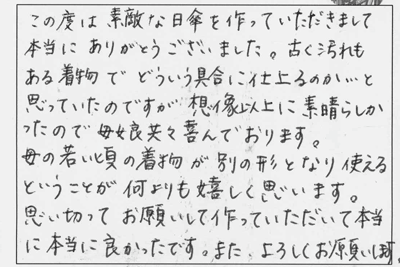 この度は素敵な日傘を作っていただきまして
本当にありがとうございました。古く汚れも
ある着物でどういう具合に仕上るのか…と
思っていたのですが想像以上に素晴らしか
ったので母娘共々喜んでおります。
母の若い頃の着物が別の形となり使える
ということが何よりも嬉しく思います。
思い切ってお願いして作っていただいて本当
に本当に良かったです。また、よろしくお願いします。